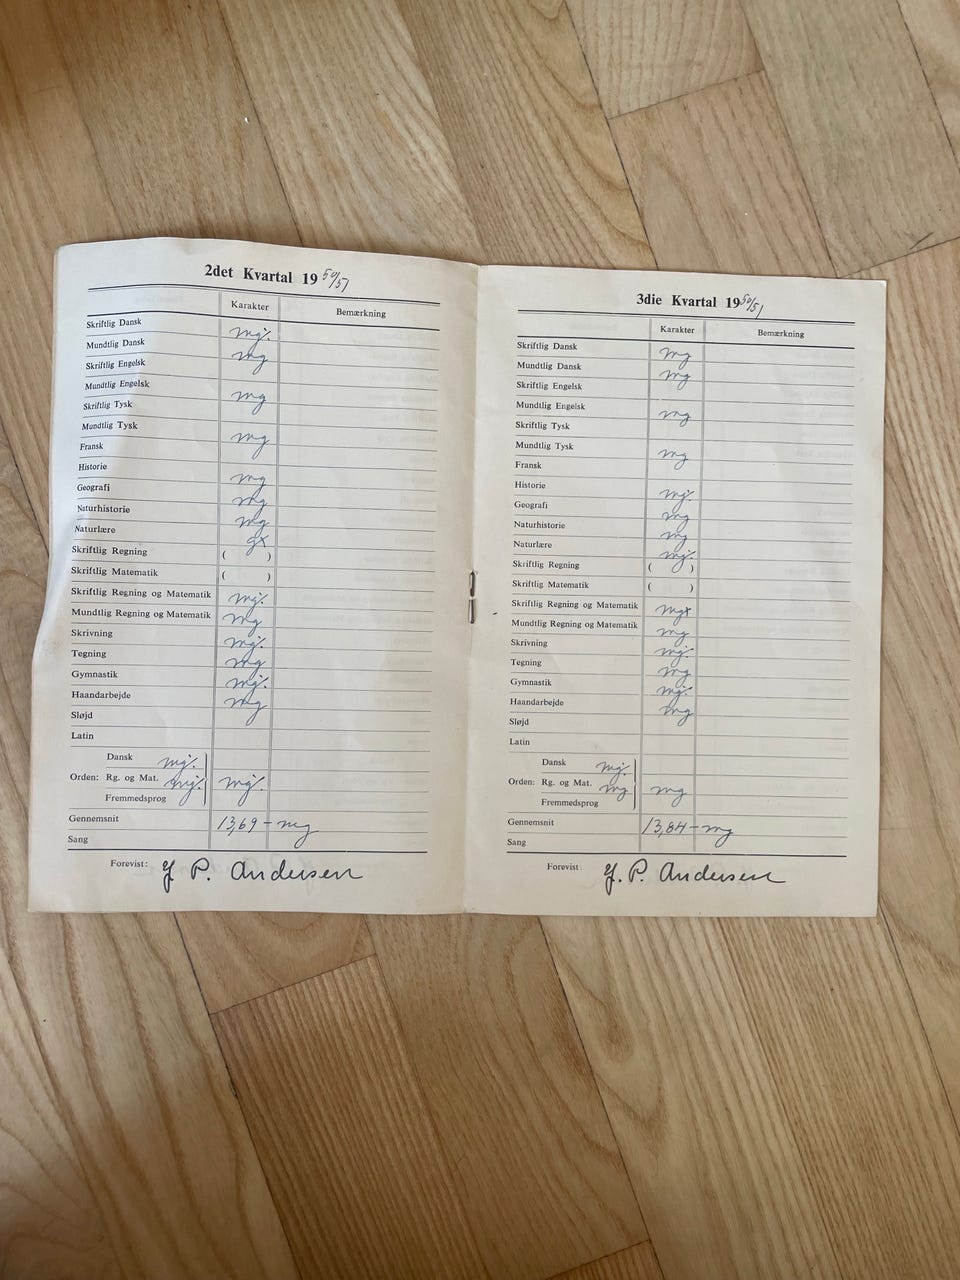 2det Kvartal 1950/51
Karakter Bemærkning
Skriftlig Dansk mg÷
Mundtlig Dansk mg
Skriftlig Engelsk
Mundtlig Engelsk mg
Skriftlig Tysk
Mundtlig Tysk mg
Fransk
Historie mg
Geografi mg
Naturhistorie mg
Naturlære gx
Skriftlig Regning ( )
Skriftlig Matematik ( )
Skriftlig Regning og Matematik mg÷
Mundtlig Regning og Matematik mg
Skrivning mg÷
Tegning mg
Gymnastik mg÷
Haandarbejde mg
Sløjd
Latin
Dansk mg÷
Orden: Rg. og Mat. mg÷ mg÷
Fremmedsprog
Gennemsnit 13,69 - mg
Sang
Forevist: P. Andersen
3die Kvartal 1950/51
Karakter Bemærkning
Skriftlig Dansk mg
Mundtlig Dansk mg
Skriftlig Engelsk
Mundtlig Engelsk mg
Skriftlig Tysk
Mundtlig Tysk mg
Fransk
Historie mg÷
Geografi mg
Naturhistorie mg
Naturlære mg÷
Skriftlig Regning ( )
Skriftlig Matematik ( )
Skriftlig Regning og Matematik mgx
Mundtlig Regning og Matematik mg
Skrivning mg÷
Tegning mg
Gymnastik mg÷
Haandarbejde mg
Sløjd
Latin
Dansk mg÷
Orden: Rg. og Mat. mg mg
Fremmedsprog
Gennemsnit 13,84 - mg
Sang
Forevist: P. Andersen